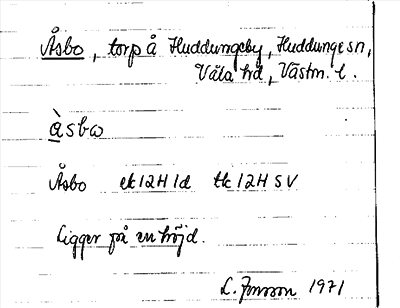 Åsbo, torp å Huddungeby, Huddunge sn,
Våla hd, Västm. l.
àsbω
Åsbo ek 12H 1d tk 12H SV
Ligger på en höjd.
L. Jonsson 1971